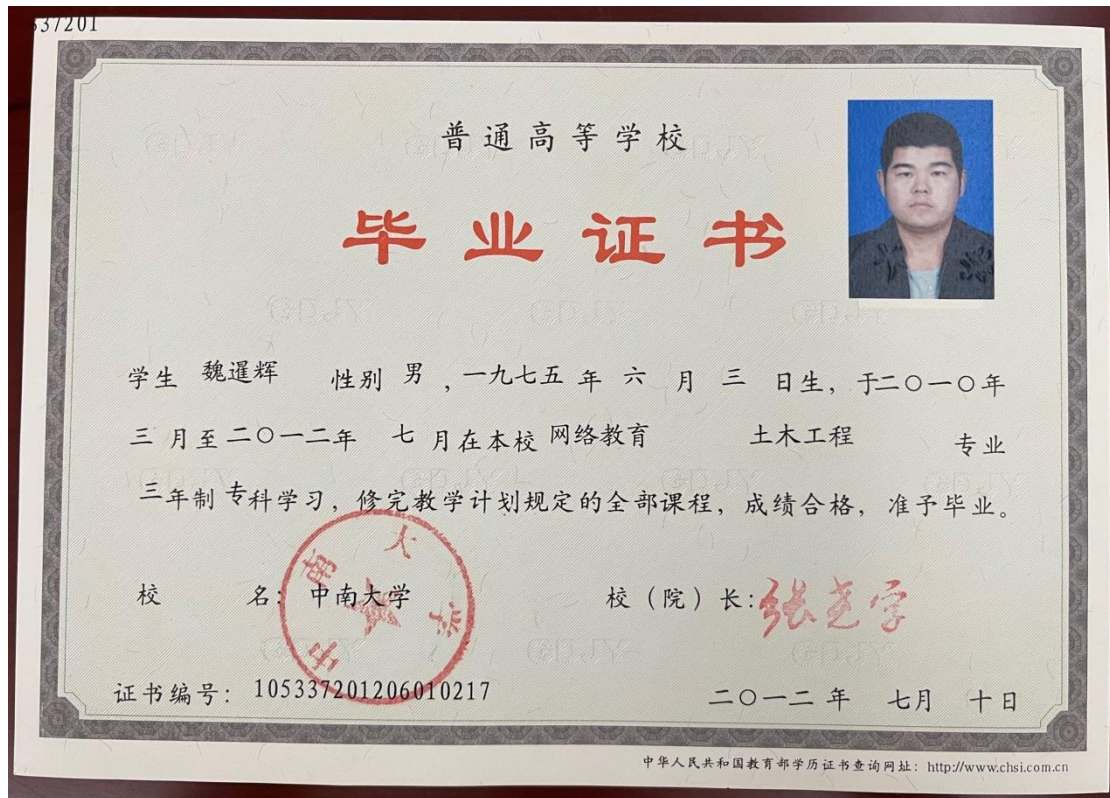 537201
普通高等学校
毕业证书
学生 魏暹辉 性别 男 , 一九七五 年 六 月 三 日生, 于二〇一〇年
三 月至二〇一二年 七 月在本校 网络教育 土木工程 专业
三年制 专科学习, 修完教学计划规定的全部课程, 成绩合格, 准予毕业。
中南大学
校 名: 中南大学 校（院）长: 张尧学
证书编号: 105337201206010217 二〇一二 年 七月 十日
中华人民共和国教育部学历证书查询网址: http://www.chsi.com.cn